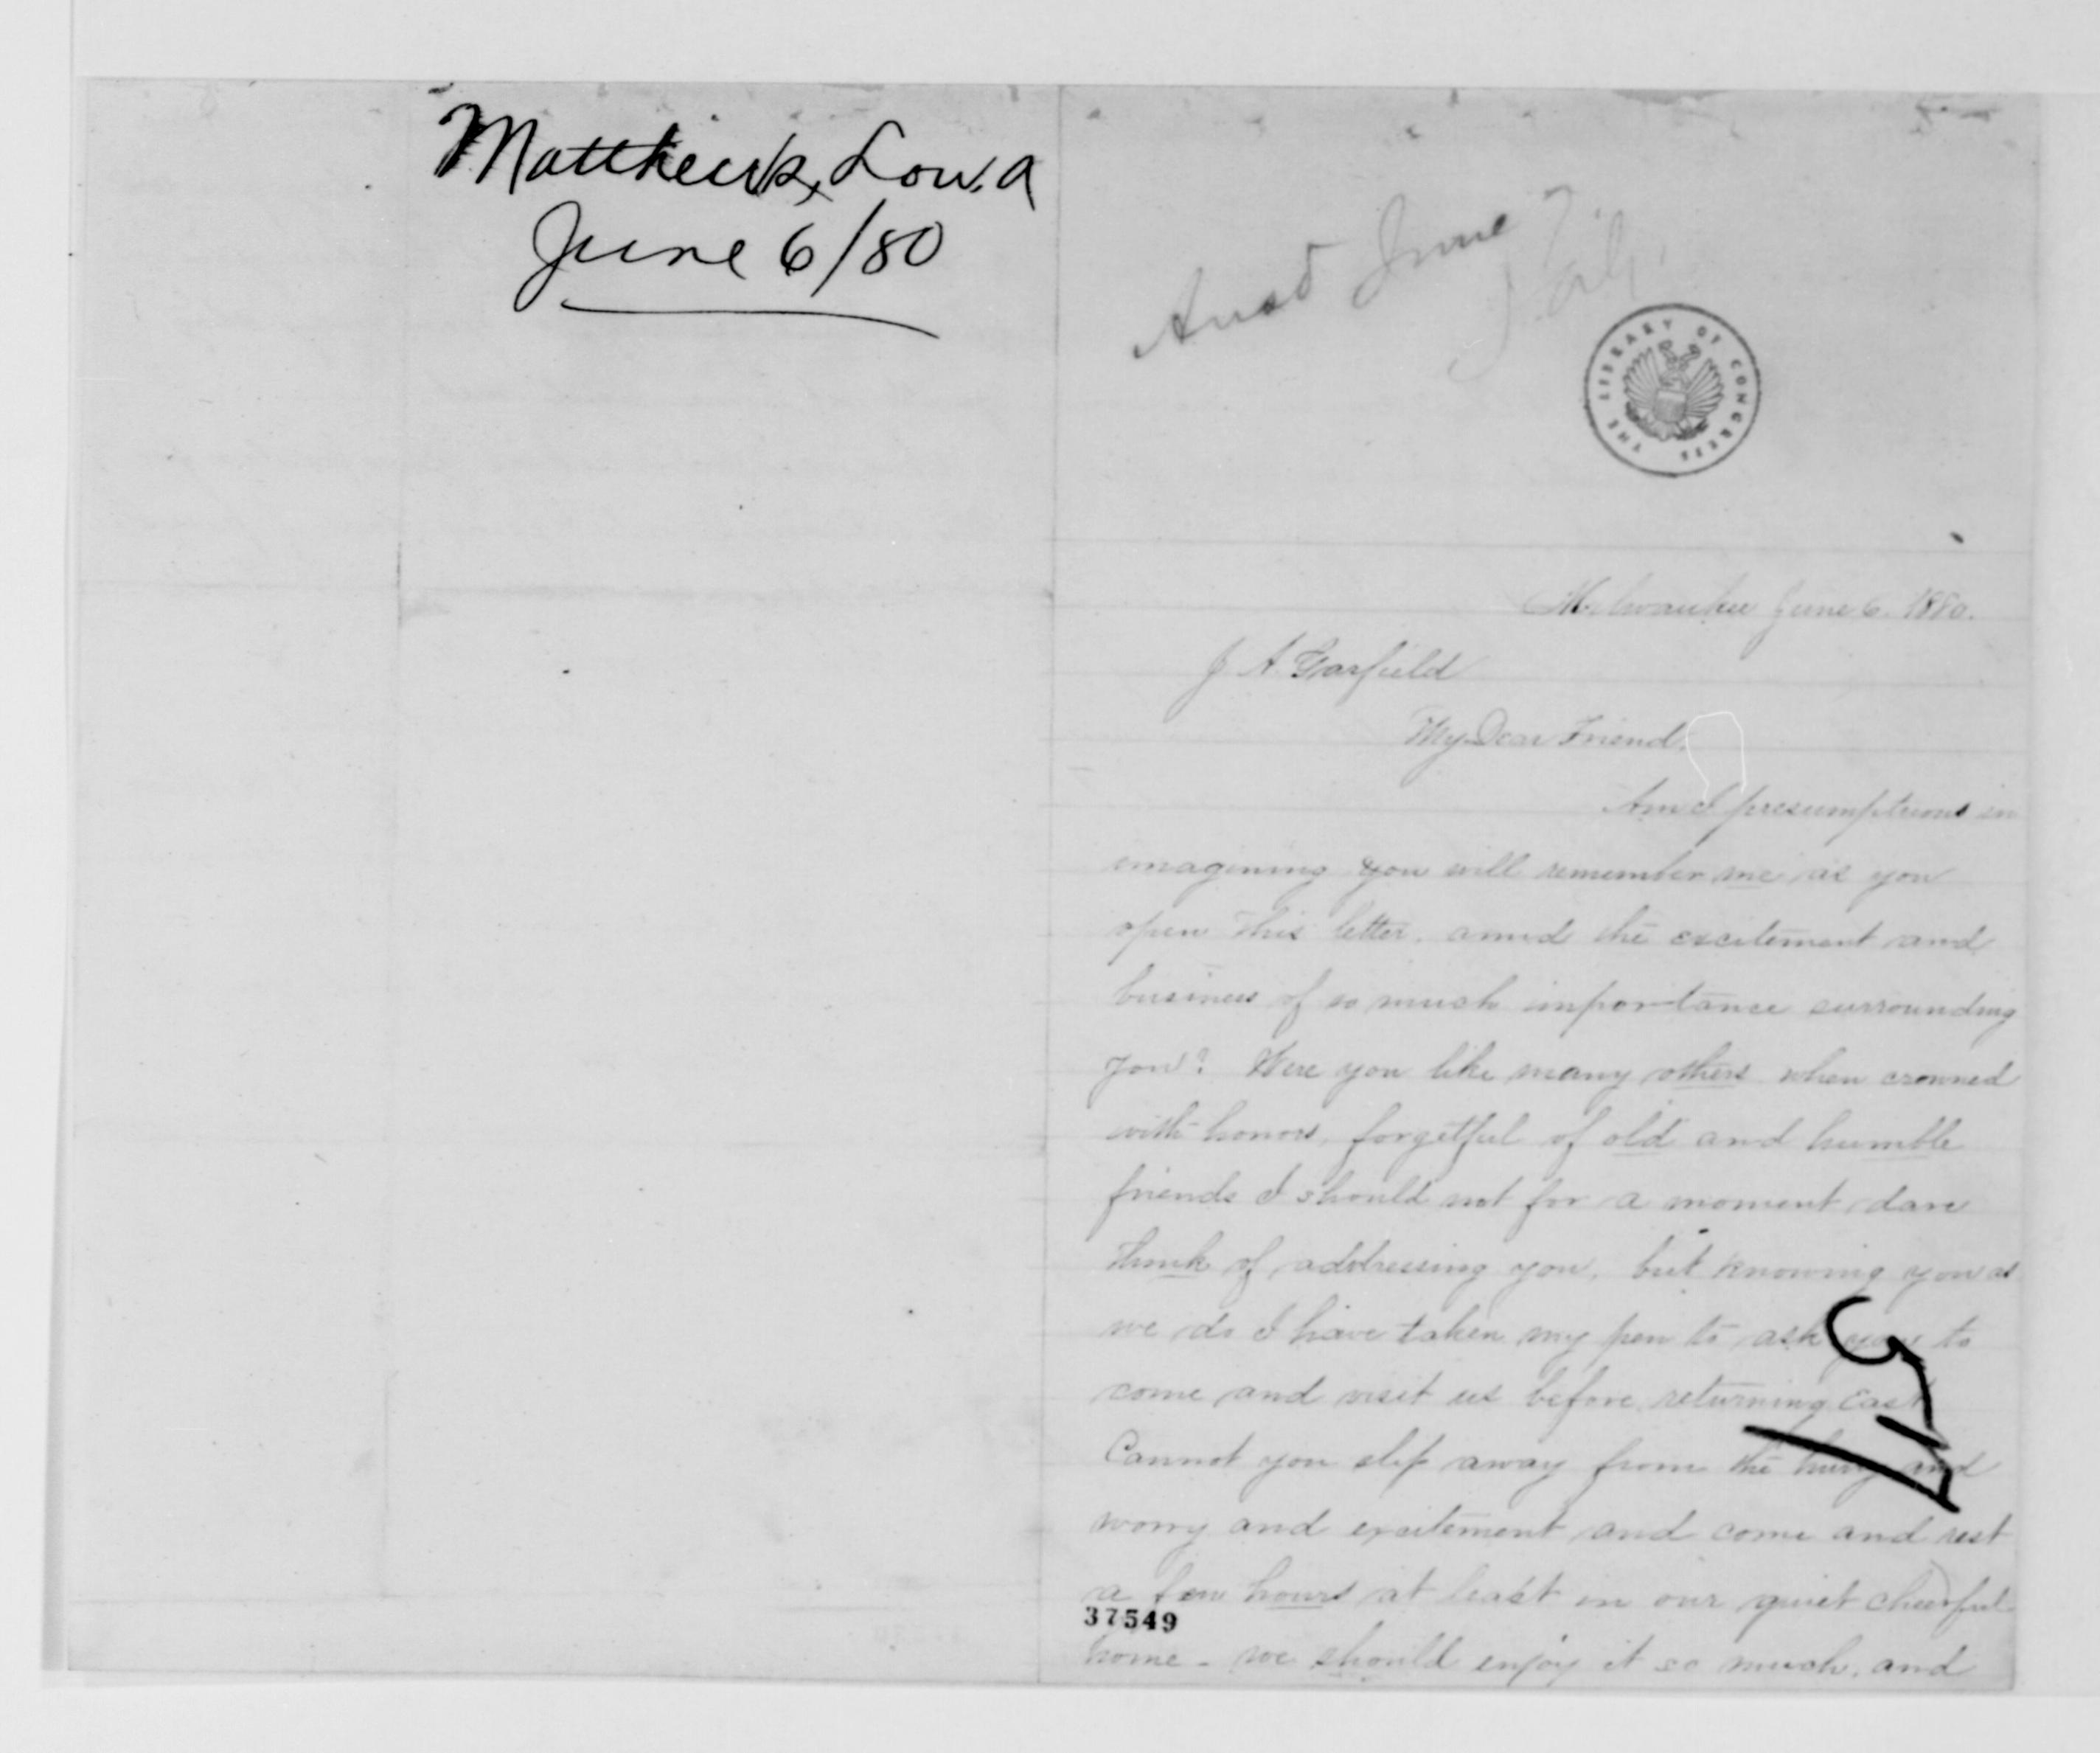 Matthews, Lou. A
June 6/80
Ansd June 7.
THE LIBRARY OF CONGRESS
Milwaukee June 6. 1880.
J A Garfield
My Dear Friend.
Am I presumptuous in
imagining you will remember me as you
open this letter, amid the excitement and
business of so much importance surrounding
you? Were you like many others when crowned
with honors, forgetful of old and humble
friends I should not for a moment dare
think of addressing you, but knowing you as
we do I have taken my pen to ask you to
come and visit us before returning East
Cannot you slip away from the hurry and
worry and excitement and come and rest
a few hours at least in our quiet cheerful
37549
home - we should enjoy it so much, and